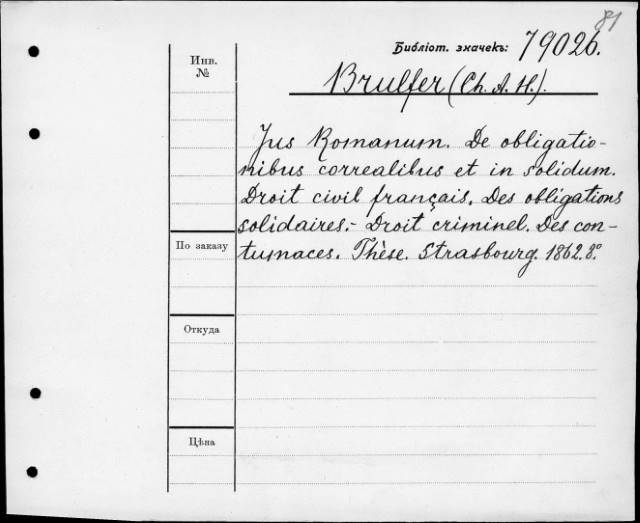 81
Библіот. значекъ: 79026.
Инв.
№
Brulfer (Ch. A. H.).
Jus Romanum. De obligatio-
nibus correalibus et in solidum.
Droit civil français. Des obligations
solidaires.- Droit criminel. Des con-
По заказу
tumaces. Thèse. Strasbourg. 1862. 8º.
Откуда
Цѣна